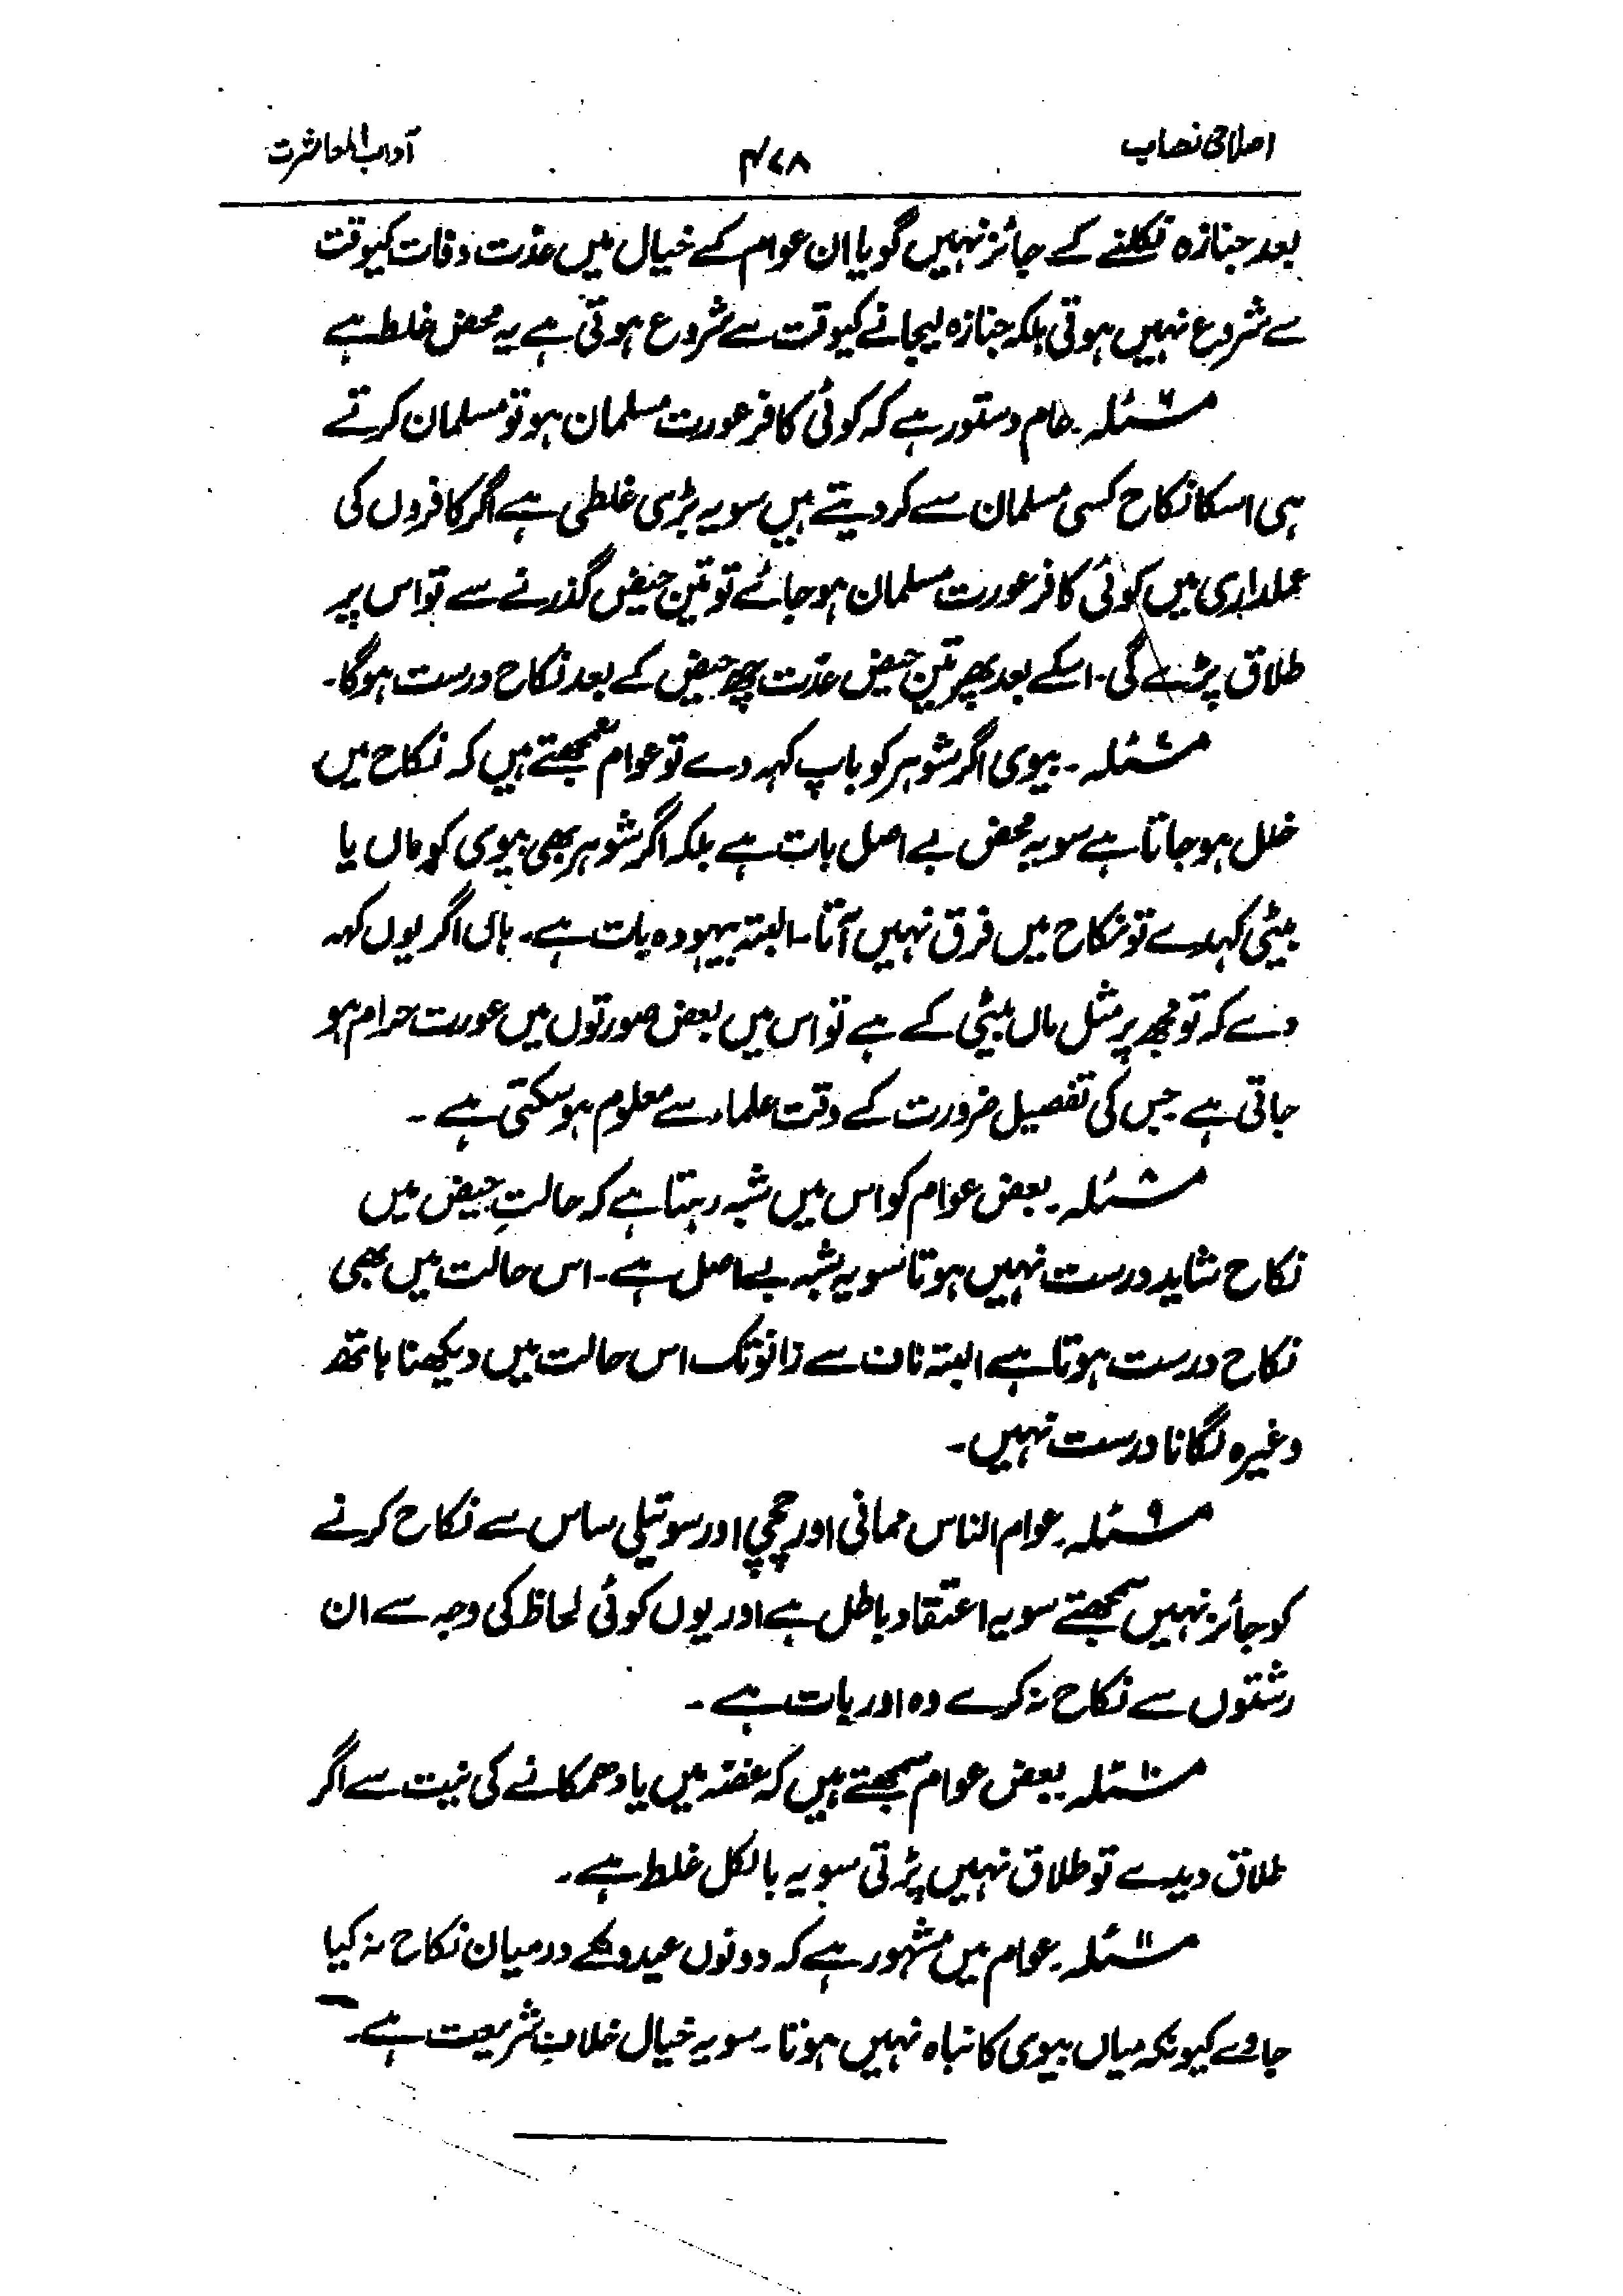 اصلاحی نصاب
۴۷۸
آداب المعاشرت
بعد جنازہ نکلنے کے جائز نہیں گویا ان عوام کے خیال میں عدّت وفات کیوقت
سے شروع نہیں ہوتی بلکہ جنازہ لیجانے کیوقت سے شروع ہوتی ہے یہ محض غلط ہے
مسئلہ ۶۔ عام دستور ہے کہ کوئی کافر عورت مسلمان ہو تو مسلمان کرتے
ہی اسکا نکاح کسی مسلمان سے کر دیتے ہیں سو یہ بڑی غلطی ہے اگر کافروں کی
عملداری میں کوئی کافر عورت مسلمان ہو جائے تو تین حیض گذرنے سے تو اس پر
طلاق پڑے گی۔ اسکے بعد پھر تین حیض عدّت چھ حیض کے بعد نکاح درست ہوگا۔
مسئلہ ۷۔ بیوی اگر شوہر کو باپ کہہ دے تو عوام سمجھتے ہیں کہ نکاح میں
خلل ہو جاتا ہے سو یہ محض بے اصل بات ہے بلکہ اگر شوہر بھی بیوی کو ماں یا
بیٹی کہدے تو نکاح میں فرق نہیں آتا۔ البتہ بیہودہ بات ہے۔ ہاں اگر یوں کہہ
دے کہ تو مجھ پر مثل ماں بیٹی کے ہے تو اس میں بعض صورتوں میں عورت حرام ہو
جاتی ہے جس کی تفصیل ضرورت کے وقت علماء سے معلوم ہو سکتی ہے۔
مسئلہ ۸۔ بعض عوام کو اس میں شبہ رہتا ہے کہ حالتِ حیض میں
نکاح شاید درست نہیں ہوتا سو یہ شبہ بے اصل ہے۔ اس حالت میں بھی
نکاح درست ہوتا ہے البتہ ناف سے زانو تک اس حالت میں دیکھنا ہاتھ
وغیرہ لگانا درست نہیں۔
مسئلہ ۹۔ عوام الناس ممانی اور چچی اور سوتیلی ساس سے نکاح کرنے
کو جائز نہیں سمجھتے سو یہ اعتقاد باطل ہے اور یوں کوئی لحاظ کی وجہ سے ان
رشتوں سے نکاح نہ کرے وہ اور بات ہے۔
مسئلہ ۱۰۔ بعض عوام سمجھتے ہیں کہ غصّہ میں یا دھمکانے کی نیت سے اگر
طلاق دیدے تو طلاق نہیں پڑتی سو یہ بالکل غلط ہے۔
مسئلہ ۱۱۔ عوام میں مشہور ہے کہ دونوں عیدوں کے درمیان نکاح نہ کیا
جاوے کیونکہ میاں بیوی کا نباہ نہیں ہوتا۔ سو یہ خیال خلافِ شریعت ہے۔